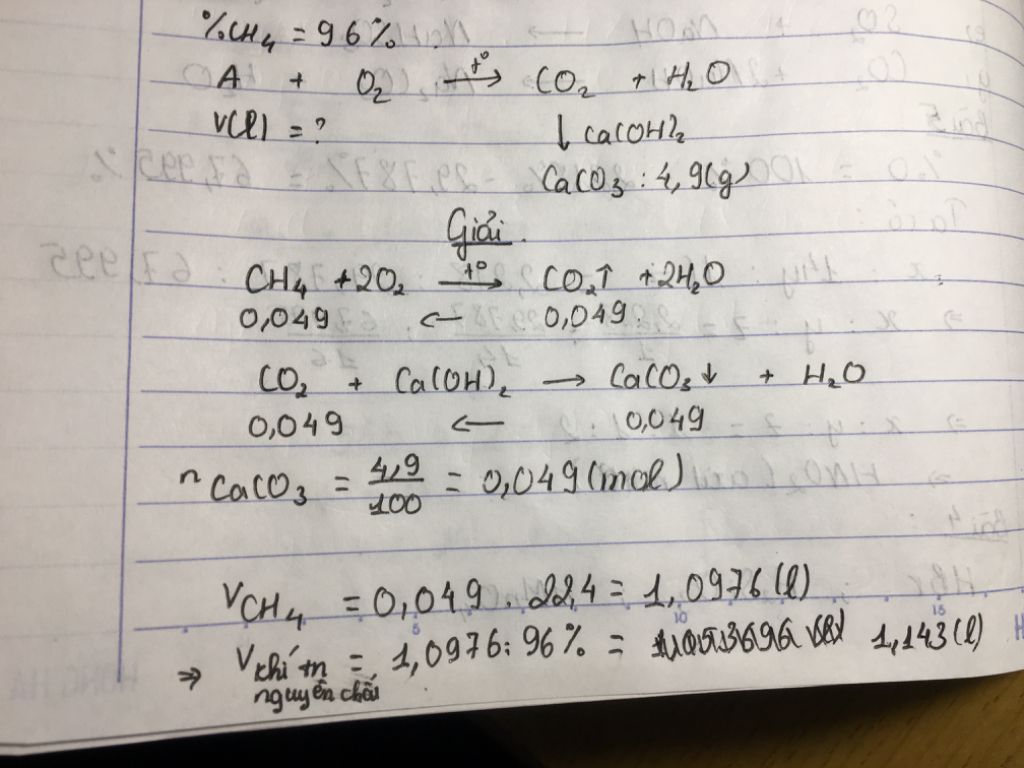 %CH₄ = 96%.
A + O₂ —t°→ CO₂ + H₂O
V(l) = ? ↓ Ca(OH)₂
CaCO₃ : 4,9(g)
Giải.
CH₄ + 2O₂ —t°→ CO₂↑ + 2H₂O
0,049 ← 0,049
CO₂ + Ca(OH)₂ → CaCO₃↓ + H₂O
0,049 ← 0,049
nCaCO₃ = 4,9/100 = 0,049(mol)
VCH₄ = 0,049 . 22,4 = 1,0976(l)
5 10 15
⇒ Vkhí tn nguyên chất = 1,0976 : 96% = 1,143(l)